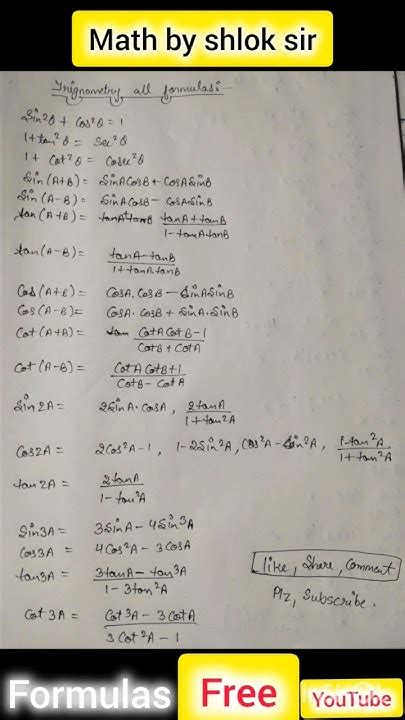 Math by shlok sir
Trignometry all formulas:-
Sin²θ + Cos²θ = 1
1 + tan²θ = Sec²θ
1 + Cot²θ = Cosec²θ
Sin(A+B) = SinACosB + CosASinB
Sin(A-B) = SinACosB - CosASinB
tan(A+B) = tanA+tanB (tanA+tanB)/(1-tanA.tanB)
tan(A-B) = (tanA-tanB)/(1+tanA.tanB)
Cos(A+B) = CosA.CosB - SinASinB
Cos(A-B) = CosA.CosB + SinA.SinB
Cot(A+B) = tan (CotACotB-1)/(CotB+CotA)
Cot(A-B) = (CotACotB+1)/(CotB-CotA)
Sin2A = 2SinA.CosA, 2tanA/(1+tan²A)
Cos2A = 2Cos²A-1, 1-2Sin²A, Cos²A-Sin²A, (1-tan²A)/(1+tan²A)
tan2A = 2tanA/(1-tan²A)
Sin3A = 3SinA - 4Sin³A
Cos3A = 4Cos²A - 3CosA
tan3A = (3tanA - tan³A)/(1-3tan²A)
Cot3A = (Cot³A - 3CotA)/(3Cot²A - 1)
like, Share, Comment
Plz, Subscribe.
Formulas Free YouTube